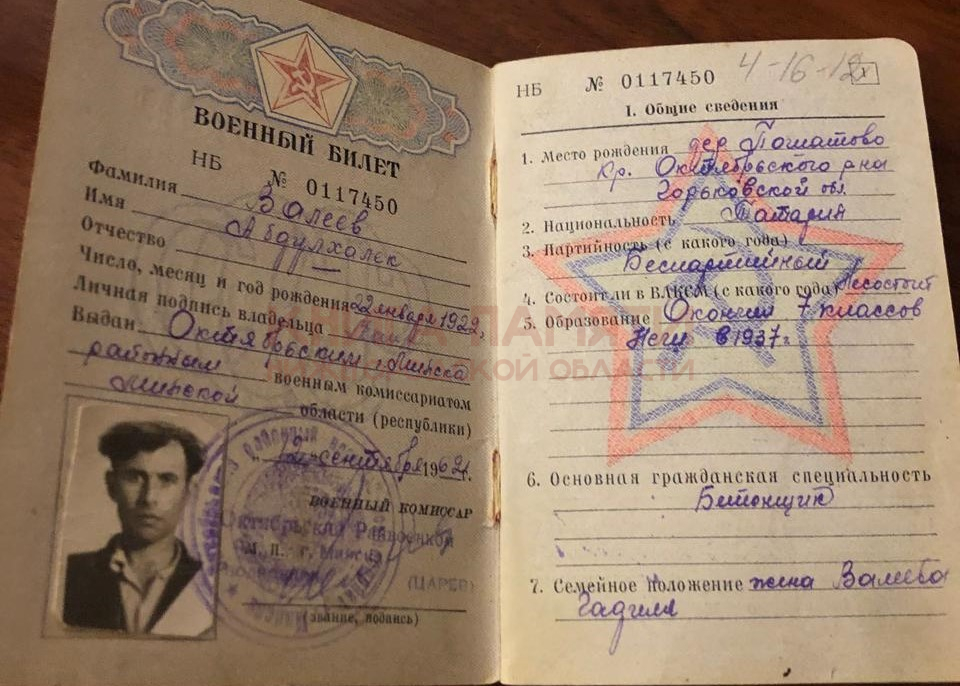 ВОЕННЫЙ БИЛЕТ
НБ № 0117450
Фамилия Валеев
Имя Абдулхалек
Отчество —
Число, месяц и год рождения 22 января 1922
Личная подпись владельца
Выдан Октябрьским г. Минска
районным военным комиссариатом
Минской области (республики)
"12" сентября 1962 г.
ВОЕННЫЙ КОМИССАР
Октябрьский Райвоенком
М. П. г. Минска
(ЦАРЕВ)
(звание, подпись)
НБ № 0117450 4-16-12
I. Общие сведения
1. Место рождения дер
Кр. Октябрьского р-на
Горьковской обл.
2. Национальность Татарин
3. Партийность (с какого года)
Беспартийный
4. Состоял ли в ВЛКСМ (с какого года) Несостоит
5. Образование Окончил 7 классов
в 1937 г
6. Основная гражданская специальность
Бетонщик
7. Семейное положение жена Валеева
КНИГА ПАМЯТИ
НИЖЕГОРОДСКОЙ ОБЛАСТИ